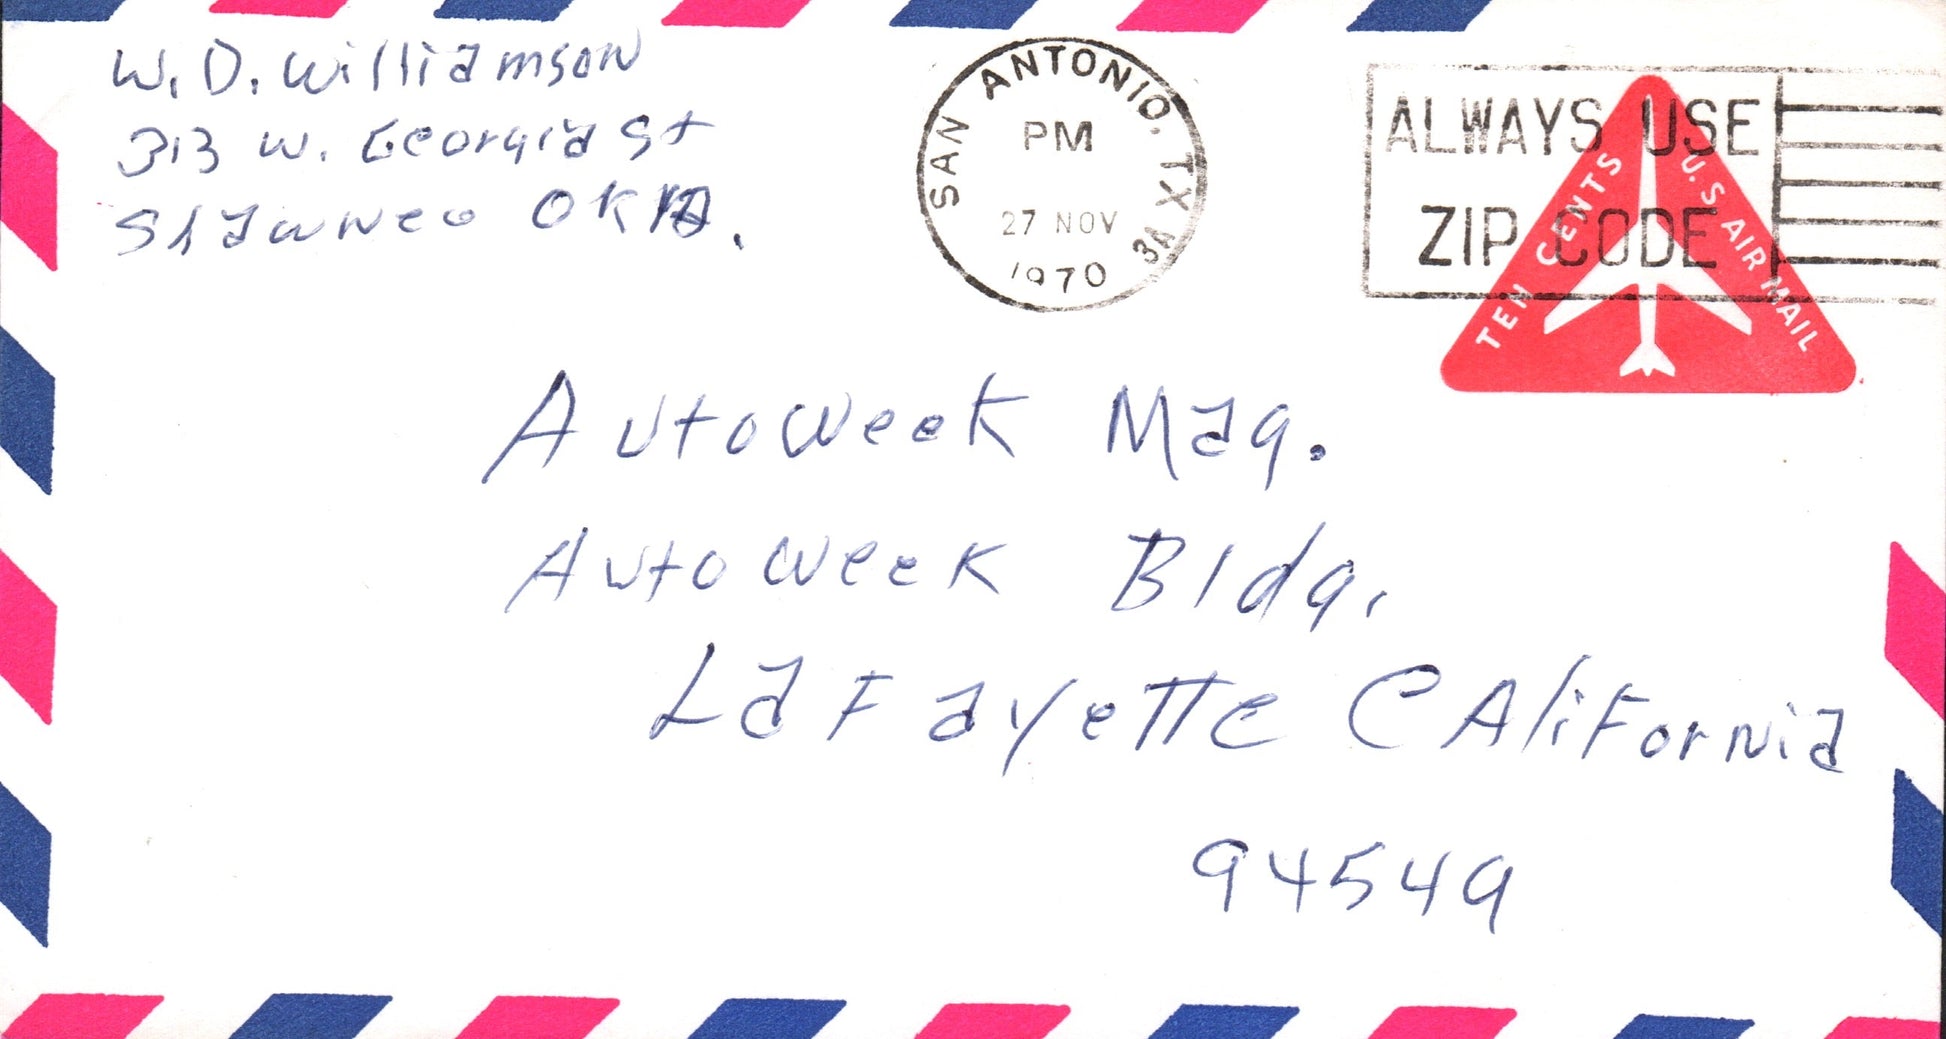 W. D. Williamson
313 W. Georgia St
Shawnee OKla.
SAN ANTONIO, TX
PM
27 NOV
1970
3A
ALWAYS USE
ZIP CODE
TEN CENTS
U.S AIR MAIL
AutoWeek Mag.
AutoWeek Bldg.
LaFayette CAliFornia
94549